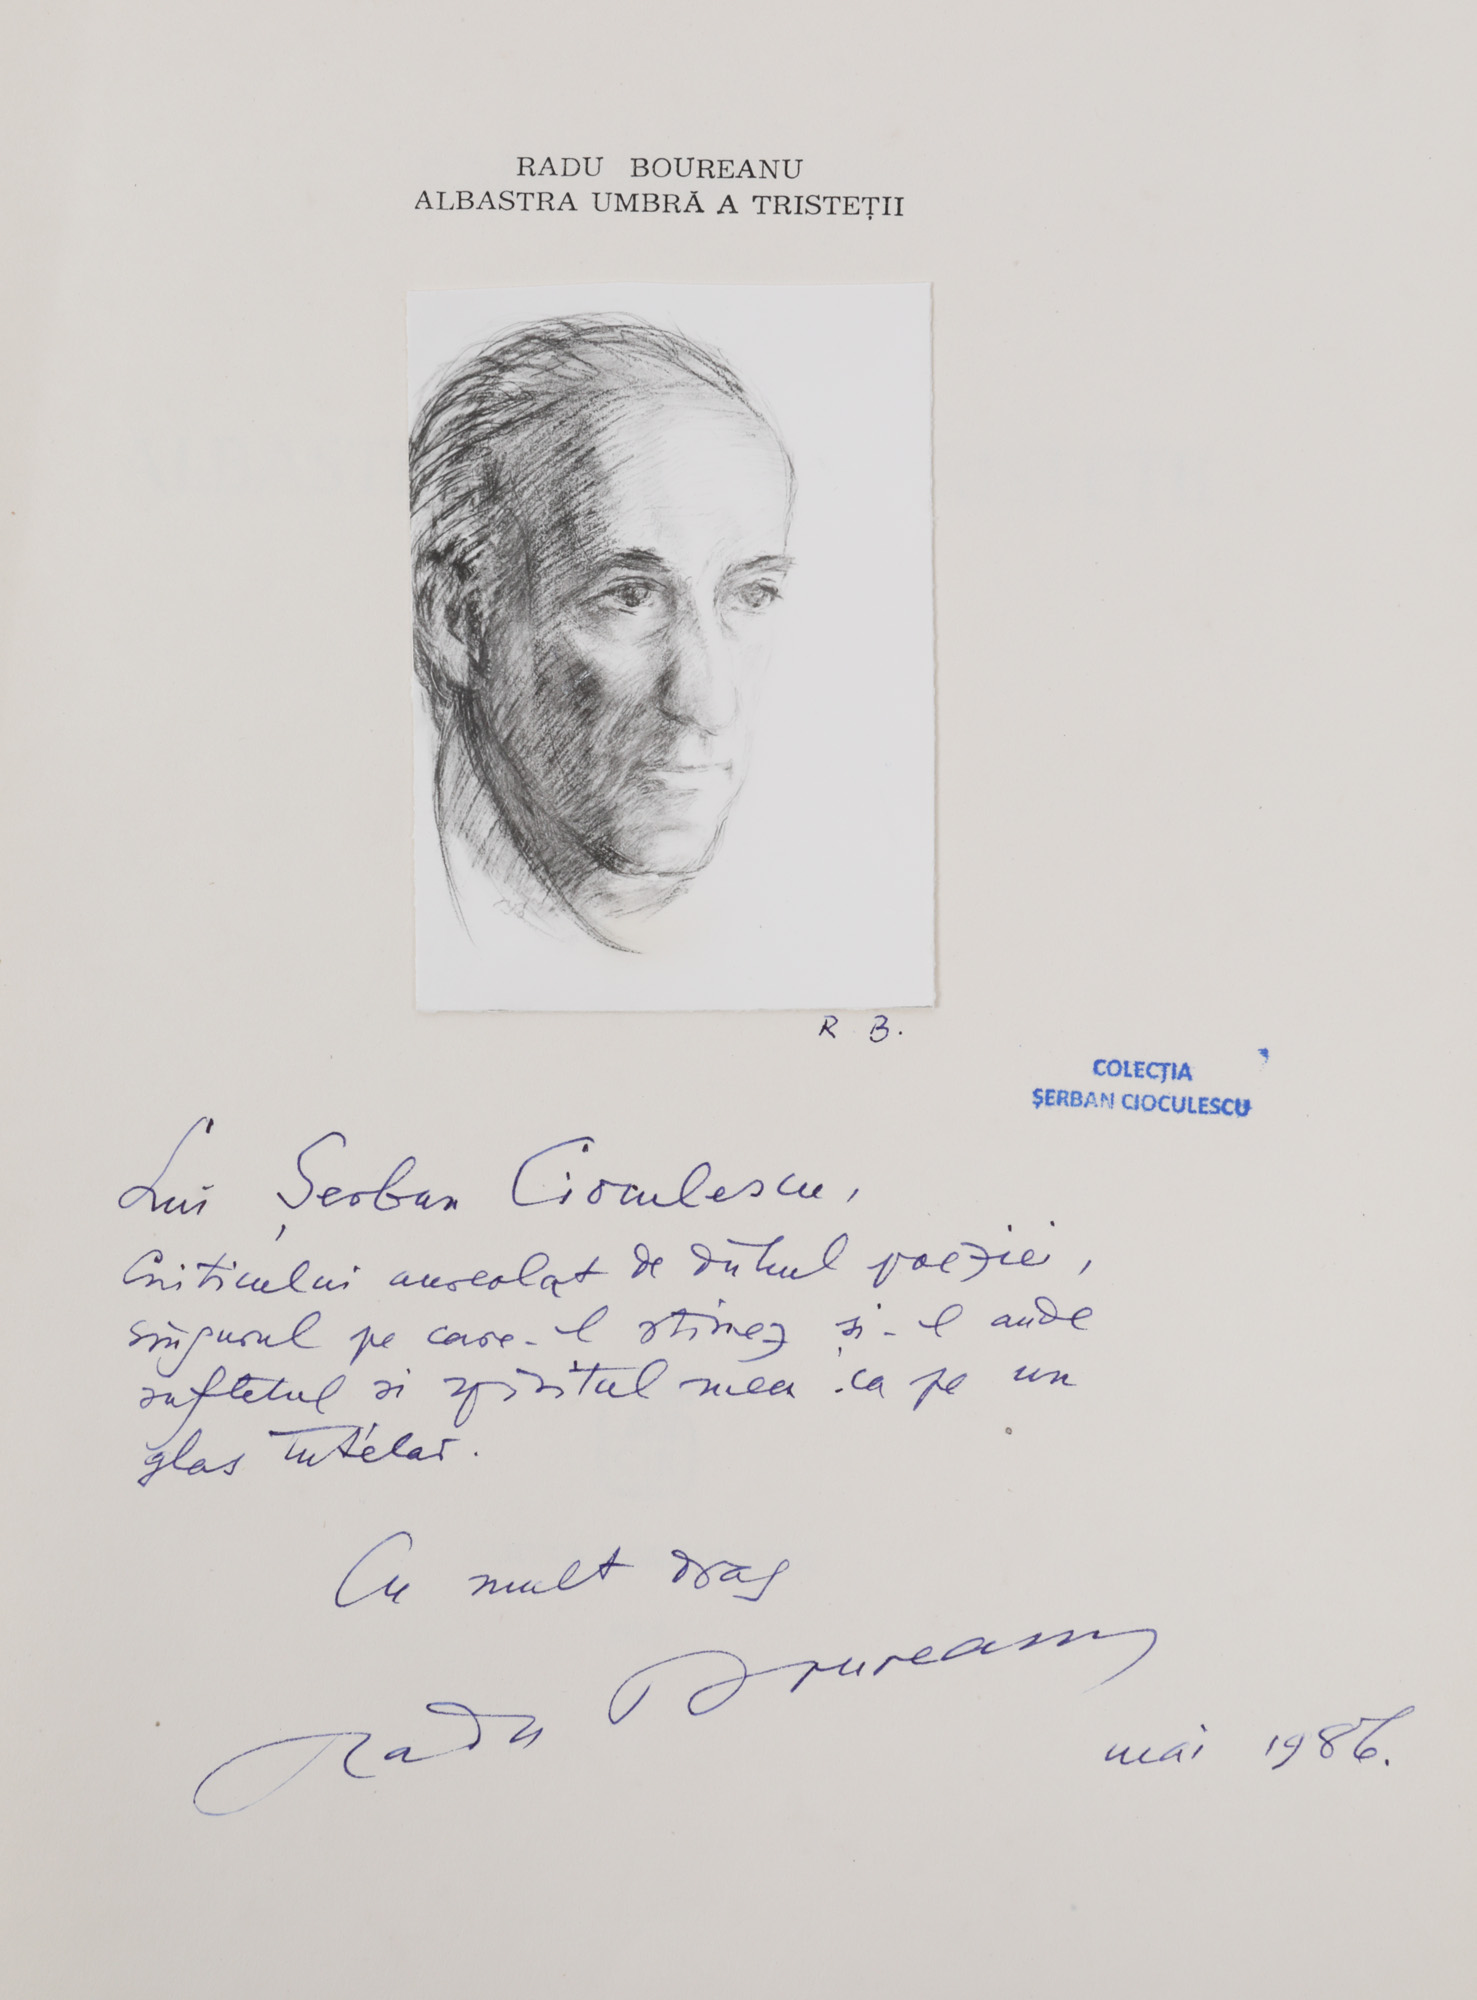 RADU BOUREANU
ALBASTRA UMBRĂ A TRISTEȚII
R B.
COLECȚIA
ȘERBAN CIOCULESCU
Lui Șerban Cioculescu,
Criticului aureolat de duhul poeziei,
singurul pe care-l stimez și-l aude
sufletul si spiritul meu ca pe un
glas tutelar.
Cu mult drag
Radu Boureanu
mai 1986.